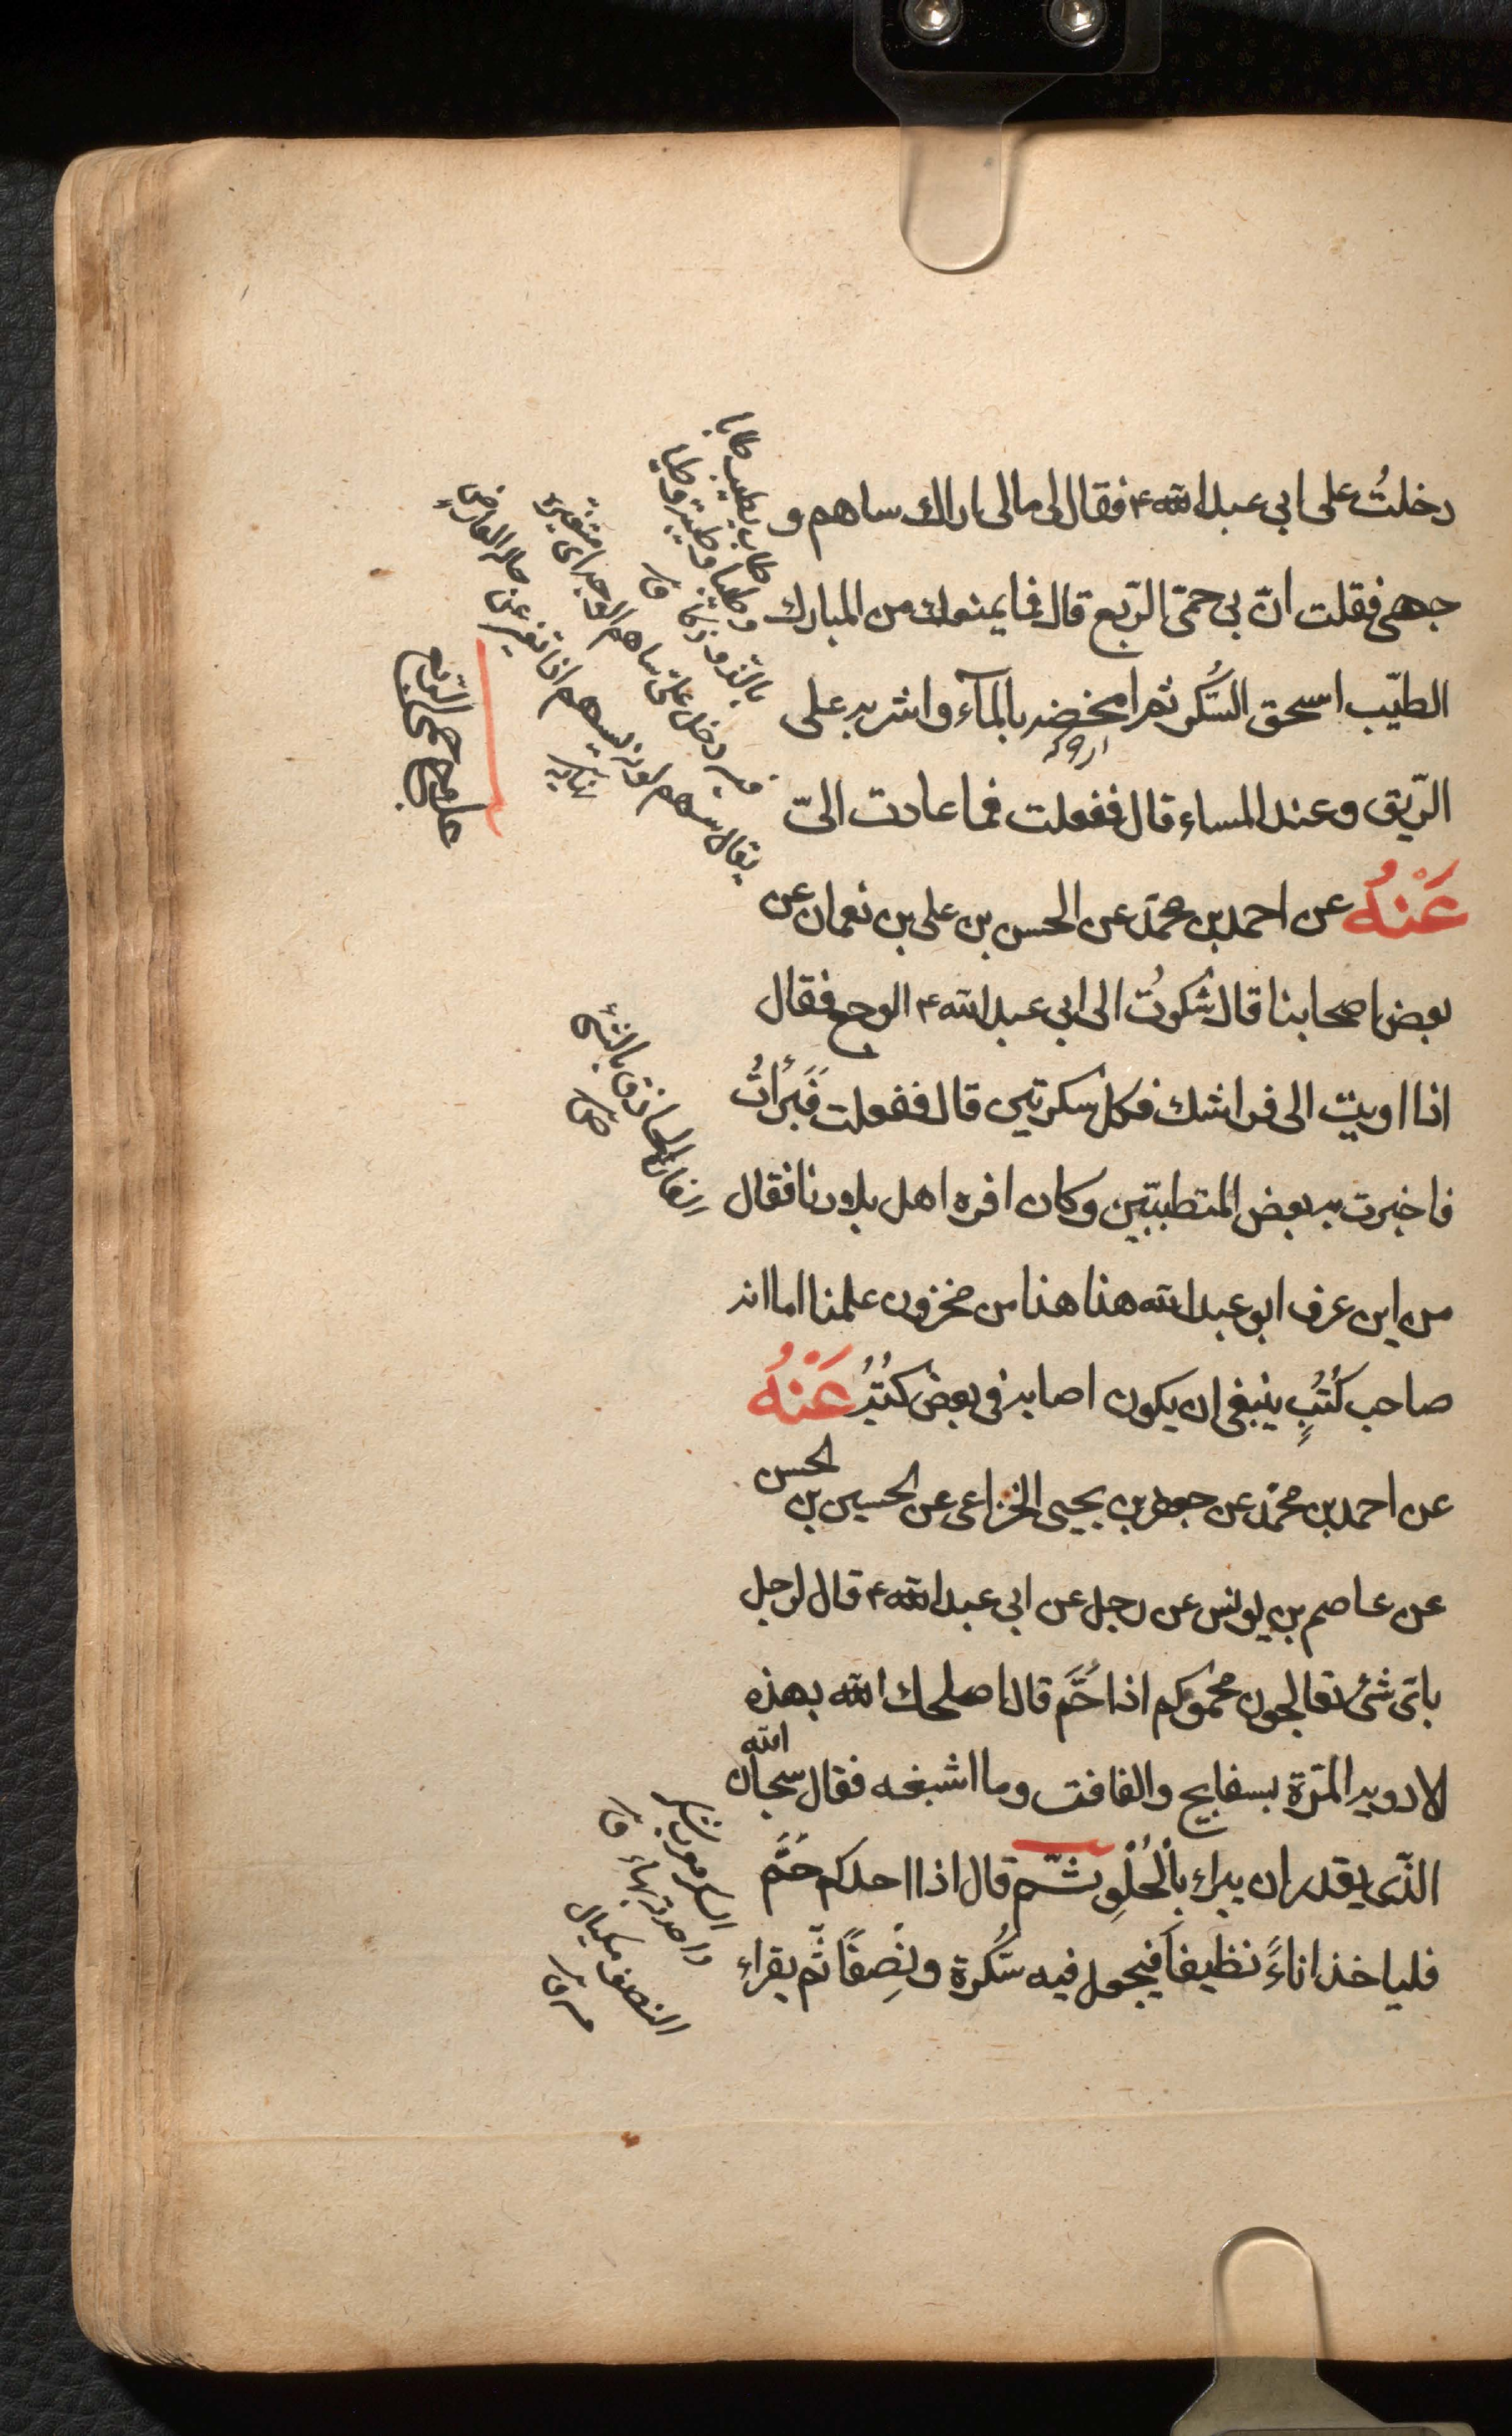 دخلتُ على ابى عبد الله ع فقال لى مالى اراك ساهم و
جهى فقلت انّ بى حمّى الرّبع قال فما يمنعك من المبارك
الطيّب اسحق السُّكر ثم امخضه بالمآء واشربه على
الرّيق وعند المساء قال ففعلت فما عادت الىّ
عَنْهُ عن احمد بن محمّد عن الحسن بن على بن نعمان عن
بعض اصحابنا قال شكوتُ الى ابى عبد الله ع الوجع فقال
اذا اويت الى فراشك فكل سكرتين قال ففعلت فَبَرَأتُ
فاخبرت به بعض المتطببّين وكان افره اهل بلادنا فقال
من اين عرف ابو عبد الله هذا هذا من مخزون علمنا اما انه
صاحب كُتُبٍ ينبغى ان يكون اصابه فى بعض كتُبُه عَنْهُ
عن احمد بن محمّد عن جعفر بن يحيى الخزاعى عن الحسين بن الحسن
عن عاصم بن يونس عن رجل عن ابى عبد الله ع قال لرجل
باىّ شئ تعالجون محمومكم اذا حُمَّ قال اصلحك الله بهذه
الادويه المرّة بسفايج والغافت وما اشبهه فقال سبحان الله
الذّى يقدر ان يبرء بالْحُلْوِ ثّم قال اذا احدكم حُمَّ
فلياخذ اناءً نظيفاً فيجعل فيه سُّكرة ونِصفًا ثّم يقراء
طاب يطيب طابا
وطيبا وطيبة وتطيابا
ق
دخل علىّ ساهم الوجه اى متغيّره
يقال سهم لونه يسهم اذا تغير عن حاله لعارضٍ
نهايه
علاج حمى الرّبع
الفاره الحاذق بالشئ
ص
السكر معرب شكر
واحدته بهاء ق
النصف مكيال